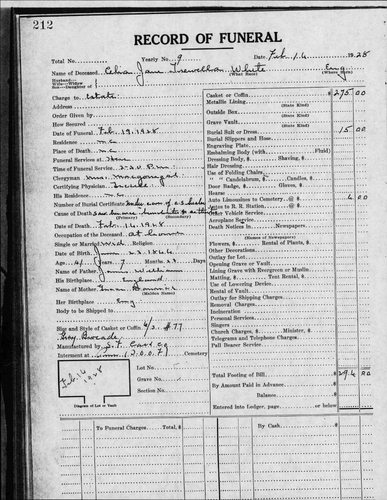 212
RECORD OF FUNERAL
Total No. Yearly No. 9 Date Feb. 14 1928
Name of Deceased Jane White Eng
(What Race) (Where Born)
Husband—
Wife—Widow
Son—Daughter of
Charge to Estate
Address
Order Given by
How Secured
Date of Funeral Feb. 19, 1928
Residence
Place of Death
Funeral Services at
Time of Funeral Service 2:30 P.M.
Clergyman
Certifying Physician
His Residence
Number of Burial Certificate
Cause of Death
(Primary) (Secondary)
Date of Death Feb. 14, 1928
Occupation of the Deceased at home
Single or Married Religion
Date of Birth 1846
Age Years 7 Months Days
Name of Father William
His Birthplace England
Name of Mother
(Maiden Name)
Her Birthplace Eng.
Body to be Shipped to
Size and Style of Casket or Coffin 6/3 #77
Grey Brocade
Manufactured by
Interment at (I.O.O.F.) Cemetery
Feb. 16
1928
Diagram of Lot or Vault
Lot No.
Grave No.
Section No.
Casket or Coffin $275 00
Metallic Lining
(State Kind)
Outside Box
(State Kind)
Grave Vault
(State Kind)
Burial Suit or Dress 15 00
Burial Slippers and Hose
Engraving Plate
Embalming Body (with Fluid)
Dressing Body, $ Shaving, $
Hair Dressing
Use of Folding Chairs
" " Candelabrum, $ Candles, $
Door Badge, $ Gloves, $
Hearse
Auto Limousines to Cemetery @ $ 4 00
Autos to R. R. Station @ $
Other Vehicle Service
Aeroplane Service
Death Notices in Newspapers
(Names of Newspapers)
Flowers, $ Rental of Plants, $
Other Decorations
Outlay for Lot
Opening Grave or Vault
Lining Grave with Evergreen or Muslin
Matting, $ Tent Rental, $
Use of Lowering Device
Rental of Vault
Outlay for Shipping Charges
Removal Charges
Incineration
Personal Services
Singers
Church Charges, $ Minister, $
Telegrams and Telephone Charges
Pall Bearer Service
Total Footing of Bill $294 00
By Amount Paid in Advance
Balance
Entered into Ledger, page or below
To Funeral Charges, Total, $ By Cash, $